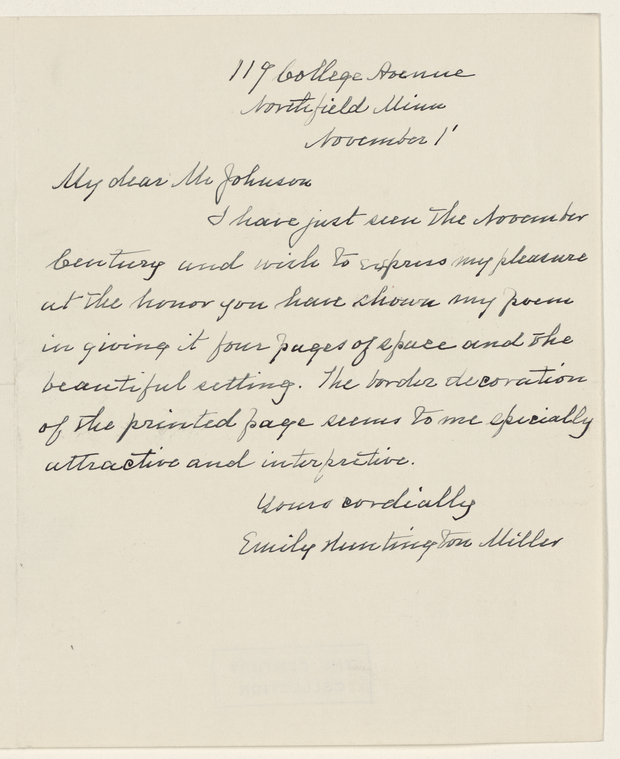 119 College Avenue
Northfield Minn
November 1'
My dear Mr Johnson
I have just seen the November
Century and wish to express my pleasure
at the honor you have shown my poem
in giving it four pages of space and the
beautiful setting. The border decoration
of the printed page seems to me specially
attractive and interpretive.
Yours cordially
Emily Huntington Miller